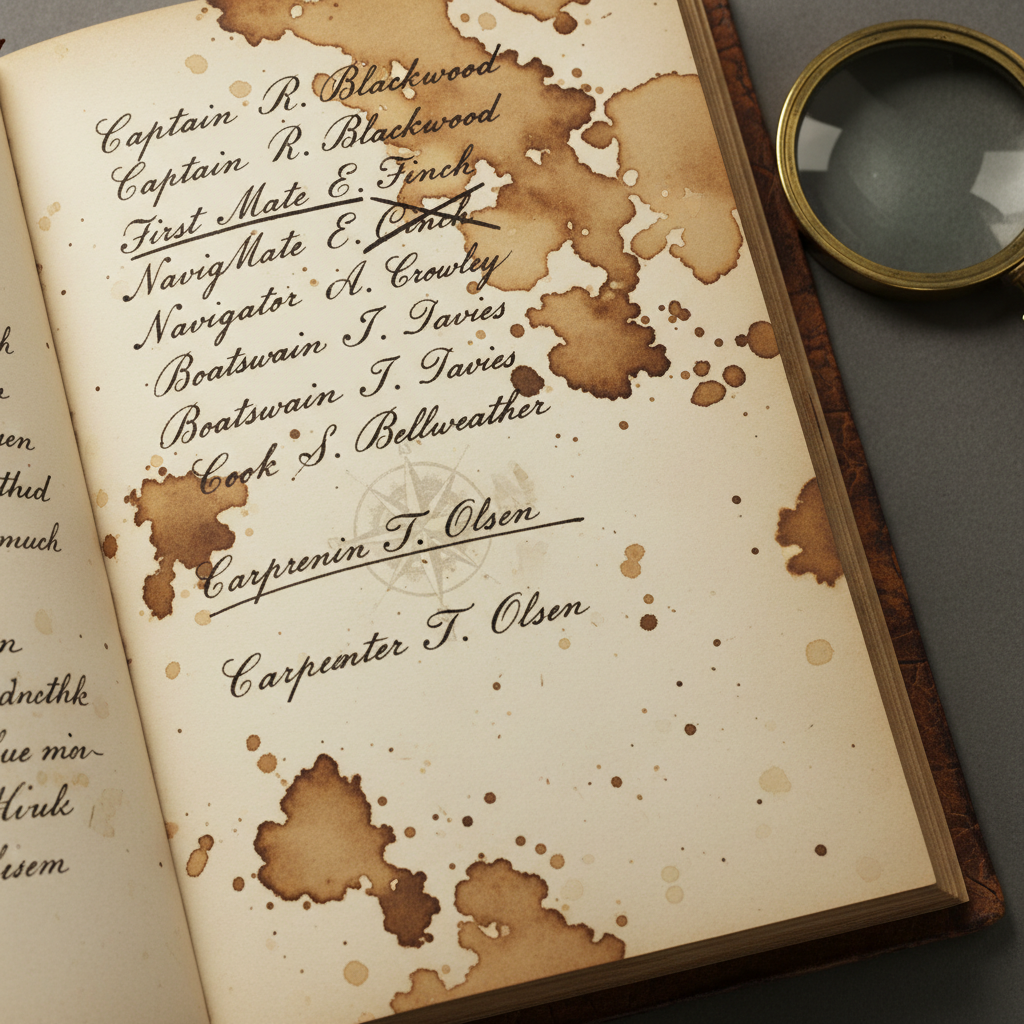 h
uen
thud
much
n
dncthk
ue mon
Hiuk
lisem
Captain R. Blackwood
Captain R. Blackwood
First Mate E. Finch
NavigMate E. Cinch
Navigator A. Crowley
Boatswain J. Tavies
Boatswain J. Tavies
Cook S. Bellweather
Carprenin T. Olsen
Carpemter T. Olsen